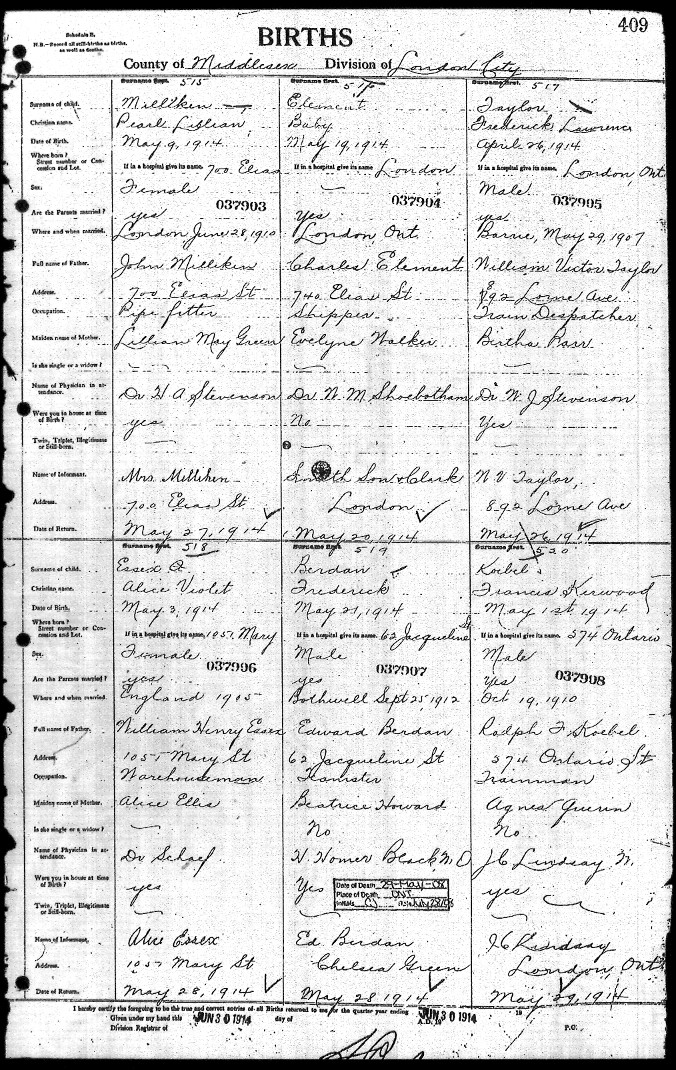 409
Schedule B.
N.B.—Record all still-births as births, as well as deaths.
BIRTHS
County of Middlesex Division of London City
Surname first. 515 516 Surname first. 517
Surname of child. Milliken Element Taylor
Christian name. Pearl Lillian Baby Frederick Lawrence
Date of Birth. May 9, 1914 May 19, 1914 April 26, 1914
Where born? Street number or Concession and Lot. If in a hospital give its name. 700 Elias If in a hospital give its name. London If in a hospital give its name. London, Ont
Sex. Female Male
037903 037904 037905
Are the Parents married? yes Yes yes
Where and when married. London June 28, 1910 London, Ont. Barrie, May 29, 1907
Full name of Father. John Milliken Charles Element William Victor Taylor
Address. 700 Elias St 740 Elias St 892 Lorne Ave
Occupation. Pipe fitter Shipper Train Despatcher
Maiden name of Mother. Lillian May Green Evelyne Walker Birtha Parr
Is she single or a widow?
Name of Physician in attendance. Dr H A Stevenson Dr W. M Shoebotham Dr W J Stevenson
Were you in house at time of Birth? yes No Yes
Twin, Triplet, Illegitimate or Still-born.
Name of Informant. Mrs. Milliken Smith Son & Clark W V Taylor,
Address. 700 Elias St London 892 Lorne Ave
Date of Return. May 27, 1914 May 20, 1914 May 26, 1914
Surname first. 518 Surname first. 519 Surname first. 520
Surname of child. Essex Berdan Koebel
Christian name. Alice Violet Frederick Francis Kirwood
Date of Birth. May 3, 1914 May 21, 1914 May 1st 1914
Where born? Street number or Concession and Lot. If in a hospital give its name. 1057 Mary If in a hospital give its name. 62 Jacqueline St If in a hospital give its name. 574 Ontario
Sex. Female Male Male
037906 037907 037908
Are the Parents married? yes yes Yes
Where and when married. England 1905 Bothwell Sept 25, 1912 Oct 19, 1910
Full name of Father. William Henry Essex Edward Berdan Ralph F. Koebel
Address. 1057 Mary St 62 Jacqueline St 574 Ontario St
Occupation. Warehouseman Teamster Trainman
Maiden name of Mother. Alice Ellis Beatrice Howard Agnes Guerin
Is she single or a widow? No No
Name of Physician in attendance. Dr Schaef H. Homer Black M.D J C Lindsay M.
Were you in house at time of Birth? yes Yes yes
Date of Death 29-May-08
Place of Death ONT.
Initials CJ
Twin, Triplet, Illegitimate or Still-born.
Name of Informant. Alice Essex Ed Berdan J C Lindsay
Address. 1057 Mary St Chelsea Green London, Ont
Date of Return. May 28, 1914 May 28 1914 May 29, 1914
I hereby certify the foregoing to be the true and correct entries of all Births returned to me for the quarter year ending 19
Given under my hand this JUN 30 1914 day of JUN 30 1914 A.D. 19
Division Registrar of P.O.